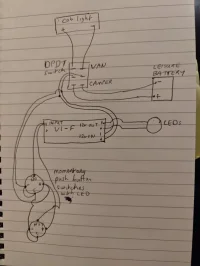 cab light
DPDT
switch
VAN
CAMPER
LEISURE
BATTERY
-
+
INPUT
V1-F
LEDs
momentary
push button
switches
with LED